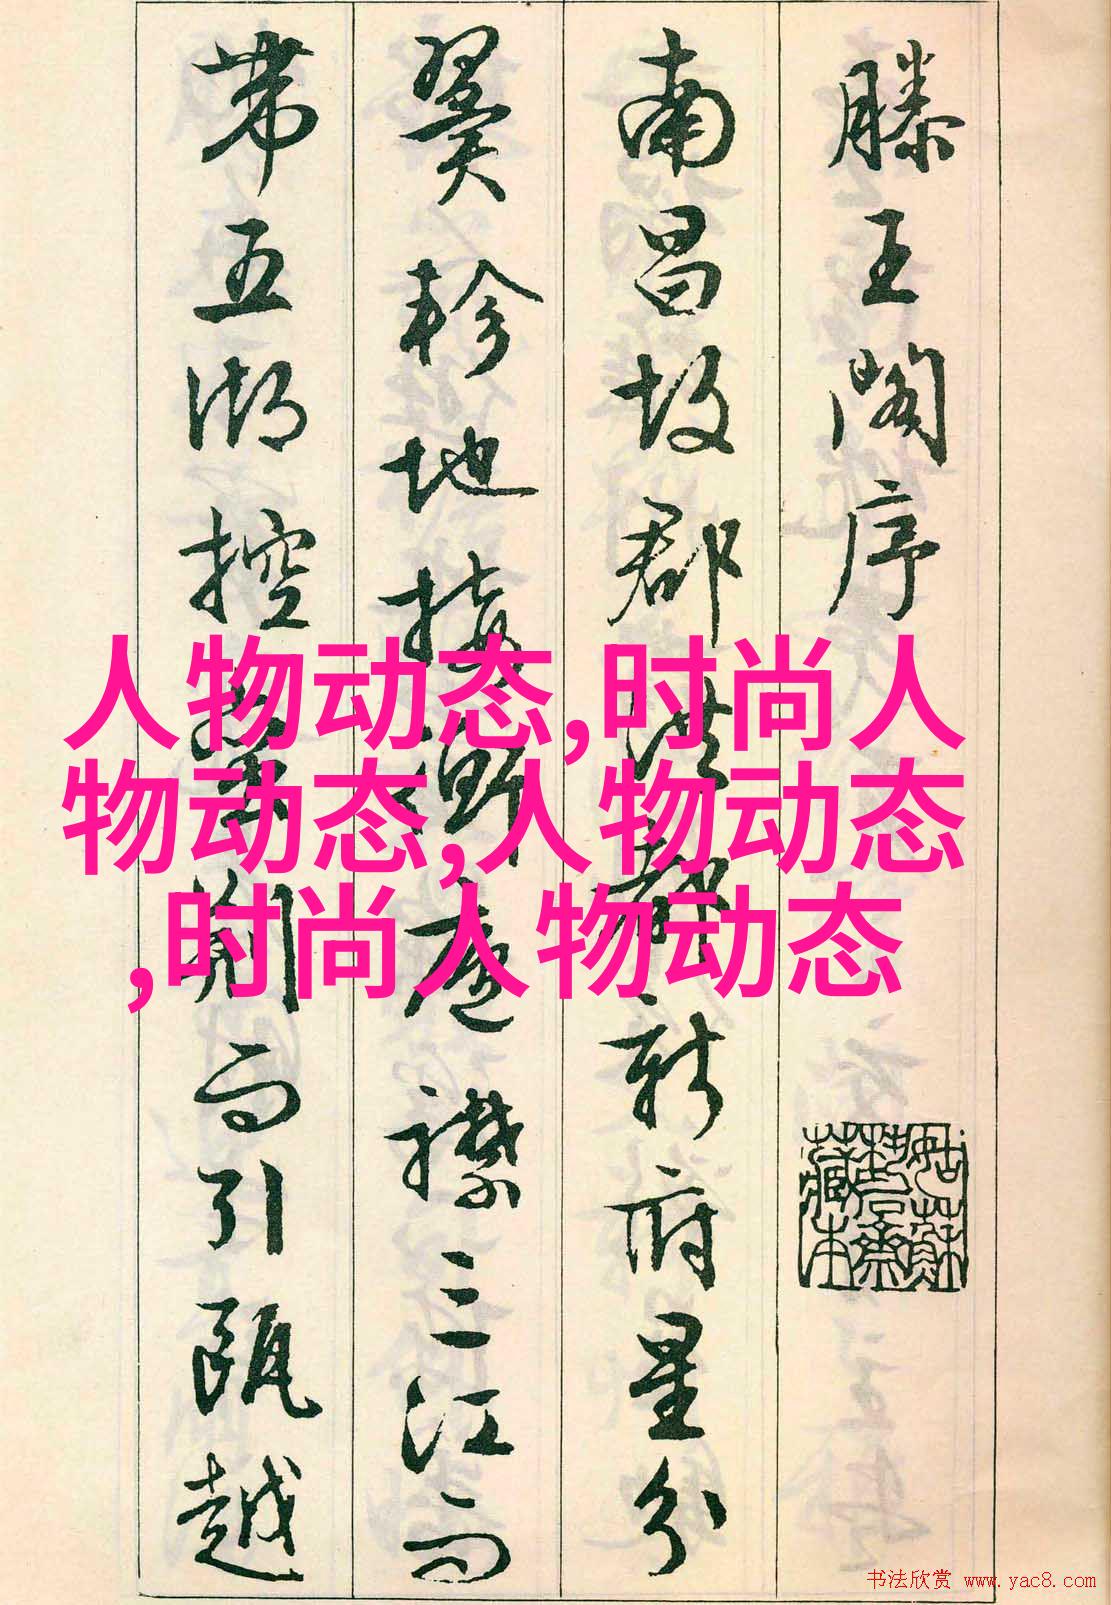 滕王阁序
南昌故郡洪都新府星分
翼轸地接衡庐襟三江而
带五湖控蛮荆而引瓯越
人物动态,时尚人
物动态,人物动态
,时尚人物动态
姑苏
藏本
书法欣赏 www.yac8.com